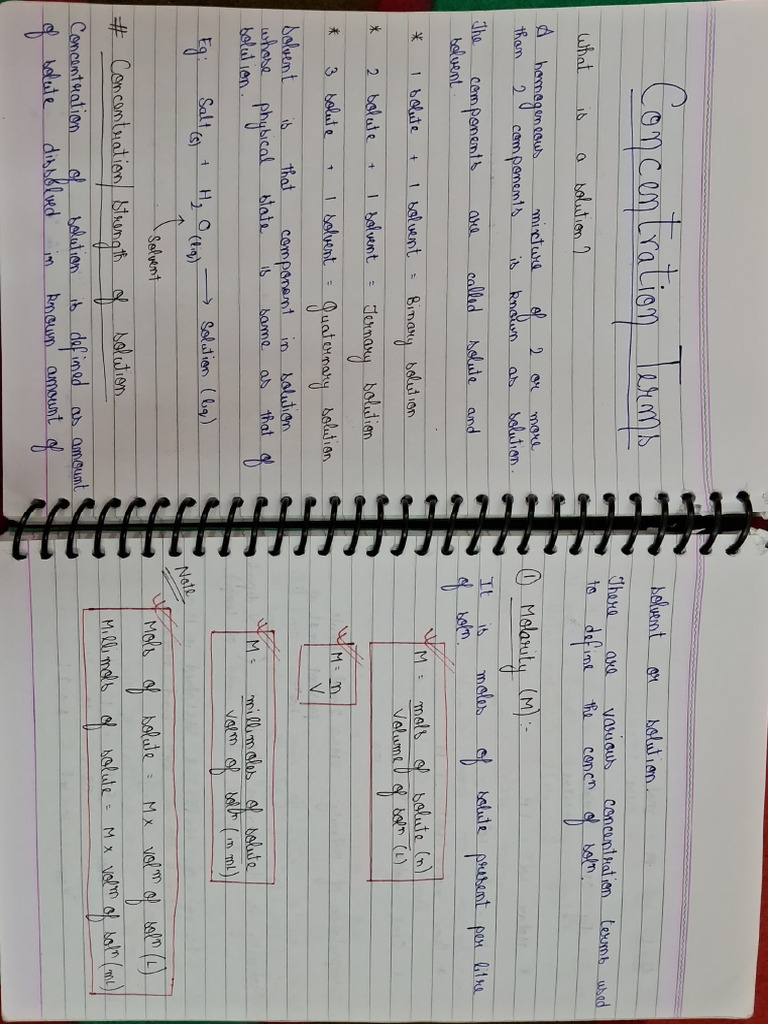 Concentration Terms
What is a solution?
A homogeneous mixture of 2 or more
than 2 components is known as solution.
The components are called solute and
solvent.
* 1 solute + 1 solvent = Binary solution
* 2 solute + 1 solvent = Ternary solution
* 3 solute + 1 solvent = Quaternary solution
Solvent is that component in solution
whose physical state is same as that of
solution.
Eg: Salt(s) + H2O(liq) → Solution (liq)
Solvent
# Concentration/Strength of solution
Concentration of solution is defined as amount
of solute dissolved in known amount of
solvent or solution.
There are various concentration terms used
to define the concn of soln.
① Molarity (M):-
It is moles of solute present per litre
of soln.
M = mols of solute (n)
Volume of soln (L)
M = n
V
M = millimoles of solute
volm of soln (in mL)
Note
Mols of solute = M x volm of soln (L)
Millimols of solute = M x volm of soln (mL)